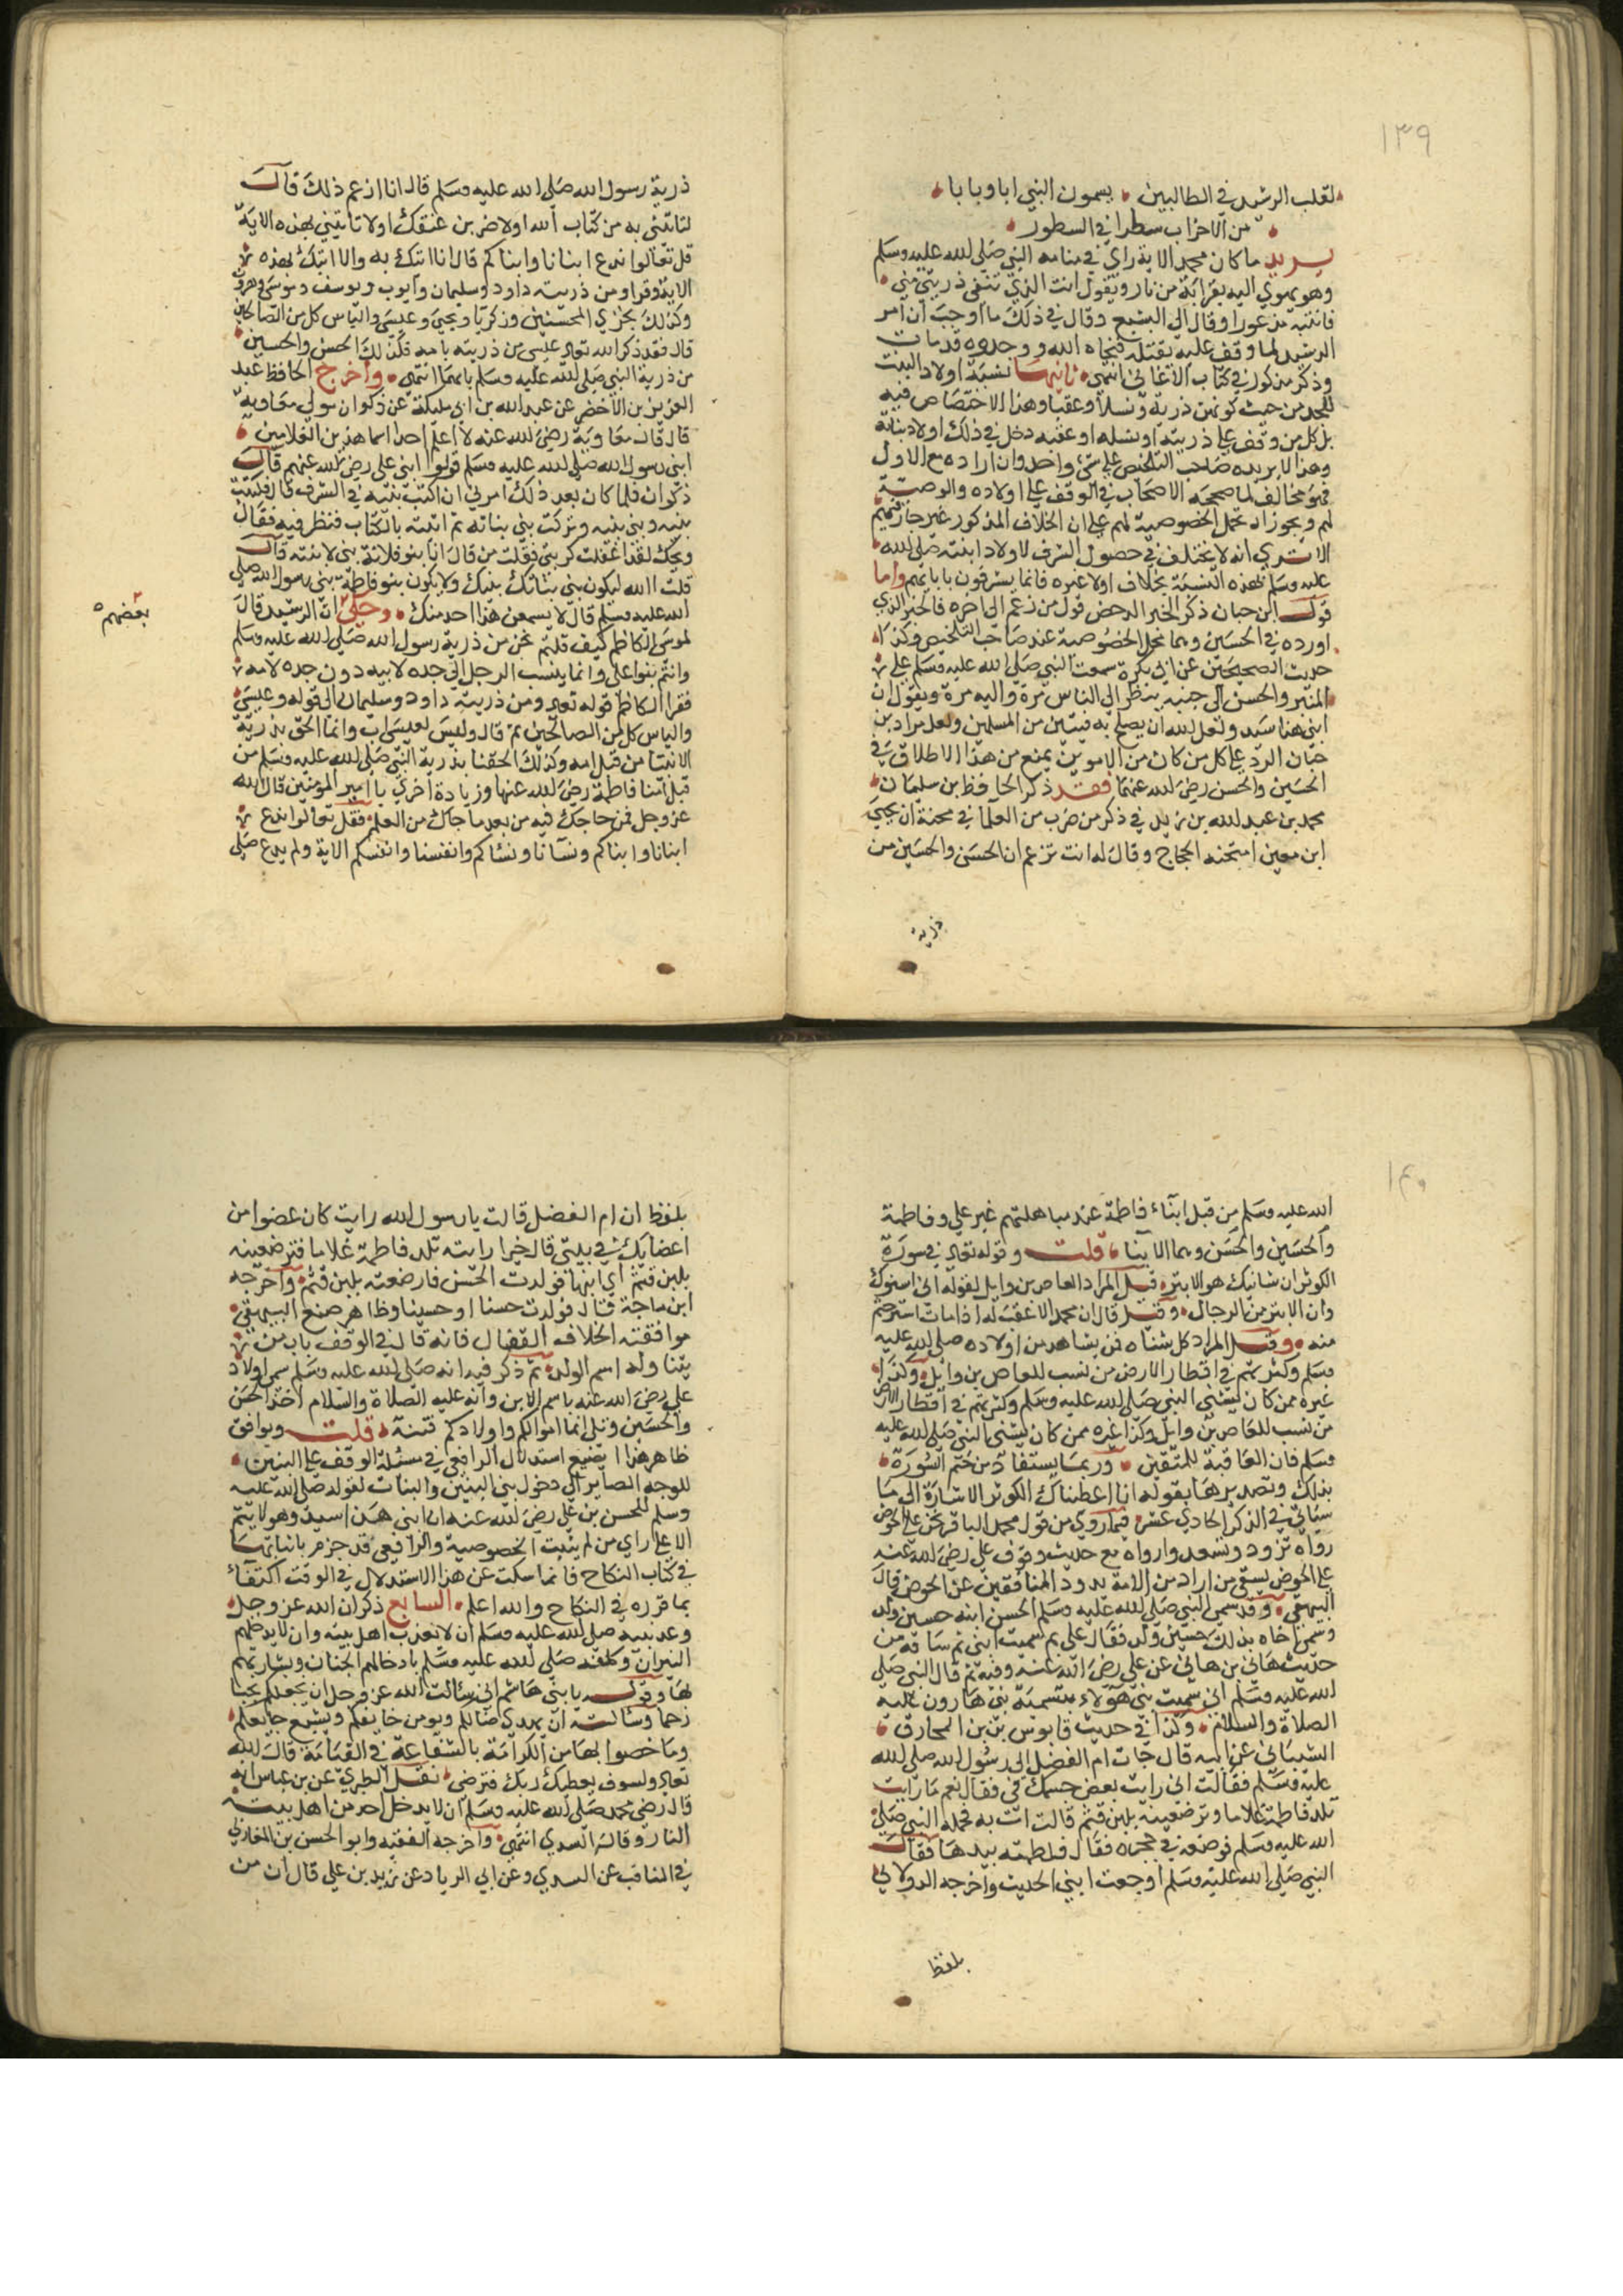 ١٣٩
لقلب الرشيد في الطالبين يسمون النبي ابا وبابا
من الاحزاب سطرا في السطور
يريد ما كان محمد الاية راي في منامه النبي صلى الله عليه وسلم
وهو يهوي اليه بقرابة من نار ويقول انت الذي تنفى ذريتي مني
فانتبه مذعورا وقال الى البشيع وقال في ذلك ما اوجب ان امر
الرشيد لما وقف عليه بقتله فنجاه الله ووجدوه قد مات
وذكر مذكور في كتاب الاغاني انتهى ثانيهما نسبة اولاد البنت
للجد من حيث كونهن ذرية ونسلا وعقبا وهذا الاختصاص فيه
بل كل من وقف على ذريته او نسله او عقبه دخل في ذلك اولاد بناته
وهذا لا يريده صاحب التلخيص على شئ واحد وان اراده مع الاول
فهو مخالف لما صححه الاصحاب في الوقف على اولاده والوصية
لهم ويجوز ان تحمل الخصوصية لهم على ان الخلاف المذكور غير جاز فيهم
الا ترى انه لا يختلف في حصول الشرف لاولاد ابنته صلى الله
عليه وسلم بهذه النسبة بخلاف اولاد غيره فانما يشرفون بابايهم واما
قول ابن حبان ذكر الخبر المدحض قول من زعم الى اخره فالخبر الذي
اورده في الحسين وبها تحمل الخصوصية عند صاحب التلخيص وكذا
حديث الصحيحين عن ابي بكرة سمعت النبي صلى الله عليه وسلم على
المنبر والحسن الى جنبه ينظر الى الناس مرة واليه مرة ويقول ان
ابني هذا سيد ولعل الله ان يصلح به فيتين من المسلمين ولعل مراد بن
حبان الرد على كل من كان من الامويين يمنع من هذا الاطلاق في
الحسين والحسن رضى الله عنهما فقد ذكر الحافظ بن سليمان
محمد بن عبد الله بن زبد في ذكر من ضرب من العلما في محنة ان يحيى
ابن معين امتحنه الحجاج وقال له انت تزعم ان الحسن والحسين من
ذرية
ذرية رسول الله صلى الله عليه وسلم قال انا ازعم ذلك قال
لتاتني به من كتاب الله او لاضربن عنقك او لا تاتيني بهذه الاية
قل تعالوا ندع ابنانا وابناكم قال انا اتيك به والا اتيك بهذه
الاية وقرا ومن ذريته داود وسليمان وايوب ويوسف وموسى وهرون
وكذلك نجزي المحسنين وزكريا ويحيى وعيسى والياس كل من الصالحين
قال فقد ذكر الله تعالى عيسى من ذريته بامه فكذلك الحسن والحسين
من ذرية النبي صلى الله عليه وسلم بامهما انتهى واخرج الحافظ عبد
العزيز بن الاخضر عن عبد الله بن ابي مليكة عن ذكوان مولى معاوية
قال قال معاوية رضى الله عنه لا اعلم احدا سما هذين الغلامين
ابني رسول الله صلى الله عليه وسلم قولوا ابني علي رضى الله عنهم قال
ذكوان فلما كان بعد ذلك امرني ان اكتب بنيه في الشرف قال فكتبت
بنيه وبني بنيه وتركت بني بناته ثم اتيته بالكتاب فنظر فيه فقال
ويحك لقد اغفلت كبر بني فقلت من قال انا بنو فلانة بني لابنته قال
قلت الله ليكون بني بناتك بنيك ولا يكون بنو فاطمة بني رسول الله صلى
الله عليه وسلم قال لا يسمعن هذا احد منك وحكى ان الرشيد قال
بعضهم
لموسى الكاظم كيف قلتم نحن من ذرية رسول الله صلى الله عليه وسلم
وانتم بنو علي وانما ينسب الرجل الى جده لابيه دون جده لامه
فقرا الكاظم قوله تعالى ومن ذريته داود وسليمان الى قوله وعيسى
والياس كل من الصالحين ثم قال وليس لعيسى اب وانما الحق بذرية
الانبيا من قبل امه وكذلك الحقنا بذرية النبي صلى الله عليه وسلم من
قبل امنا فاطمة رضى الله عنها وزيادة اخري يا امير المومنين قال الله
عز وجل فمن حاجك فيه من بعد ما جاك من العلم فقل تعالوا ندع
ابنانا وابناكم ونسانا ونساكم وانفسنا وانفسكم الاية ولم يدع صلى
١٤٠
الله عليه وسلم من قبل ابناء فاطمة عند مباهلتهم غير علي وفاطمة
والحسين والحسن وهما الابنا قلت وقوله تعالى في سورة
الكوثر ان شانيك هو الابتر قيل المراد العاص بن وايل لقوله اني اشنوك
وان الابتر من الرجال وقيل قال ان محمدا لا عقب له اذا مات استرحتم
منه وقيل المراد كل شناه فمن يشاهد من اولاده صلى الله عليه
وسلم وكثرتهم في اقطار الارض من نسب للعاص بن وائل وكذا
غيره ممن كان يشنى النبي صلى الله عليه وسلم وكثرتهم في اقطار الارض
من نسب للعاص بن وائل وكذا غيره ممن كان يشنى النبي صلى الله عليه
وسلم فان العاقبة للمتقين وربما يستفاد من ختم السورة
بذلك وتصديرها بقوله انا اعطيناك الكوثر الاشارة الى ما
سياتي في الذكر الحادي عشر فيما روي من قول محمد الباقر نحن على الحوض
رواه تزود ونسعد وارواه مع حديث وقوف علي رضى الله عنه
على الحوض يسقي من اراد من الامة يذود المنافقين عن الحوض قال
البيهقي وقد سمى النبي صلى الله عليه وسلم الحسن ابنه حسين ولد
وسمى اخاه بذلك حسين ولد فقال علي بم سميت ابني ثم ساقه من
حديث هاني بن هاني عن علي رضى الله عنه وفيه ثم قال النبي صلى
الله عليه وسلم اني سميت بني هؤلاء بتسمية بني هارون عليه
الصلاة والسلام وكذا في حديث قابوس بن بن المخارق
الشيباني عن ابيه قال جات ام الفضل الى رسول الله صلى الله
عليه وسلم فقالت اني رايت بعض جسمك في فقال نعم ما رايت
تلد فاطمة غلاما وترضعينه بلبن قثم قالت اتت به فحمله النبي صلى
الله عليه وسلم فوضعه في حجره فقال فلطمته بيدها فقال
النبي صلى الله عليه وسلم اوجعت ابني الحديث واخرجه الدولابي
بلفظ
بلفظ ان ام الفضل قالت يا رسول الله رايت كان عضوا من
اعضايك في بيتي قال خيرا رايته تلد فاطمة غلاما فترضعينه
بلبن قثم اي ابنها فولدت الحسن فارضعته بلبن قثم واخرجه
ابن ماجة قال فولدت حسنا او حسينا وظاهر صنع البيهقي
موافقته الخلاف القفال فانه قال في الوقف باب من
يتناوله اسم الولد ثم ذكر فيه انه صلى الله عليه وسلم سمى اولاد
علي رضى الله عنه باسم الابن وانه عليه الصلاة والسلام اخذ الحسن
والحسين وتلى انما اموالكم واولادكم فتنة قلت ويوافق
ظاهر هذا الصنيع استدلال الرافعي في مسئلة الوقف على البنين
للوجه الصاير الى دخول بني البنين والبنات لقوله صلى الله عليه
وسلم للحسن بن علي رضى الله عنه ان ابني هذا سيد وهو لا يتم
الا على راي من لم يثبت الخصوصية والرافعي قد جزم باثباتها
في كتاب النكاح فانما سكت عن هذا الاستدلال في الوقف اكتفاء
بما قرره في النكاح والله اعلم السابع ذكر ان الله عز وجل
وعد نبيه صلى الله عليه وسلم ان لا يعذب اهل بيته وان لا يدخلهم
النيران وكلفه صلى الله عليه وسلم بادخالهم الجنان وبشارتهم
بها وقوله يا بني هاشم اني سالت الله عز وجل ان يجعلكم نجبا
رحما وسالته ان يهدي ضالكم ويومن خايفكم ويشبع جايعكم
وما خصوا بها من الكرامة بالشفاعة في القيامة قال الله
تعالى ولسوف يعطيك ربك فترضى نقل الطبري عن بن عباس انه
قال رضى محمد صلى الله عليه وسلم ان لا يدخل احد من اهل بيته
النار وقاله السدي انتهى واخرجه الفقيه وابو الحسن بن المغازلي
في المناقب عن السدي وعن ابي الزياد عن زيد بن علي قال ان من